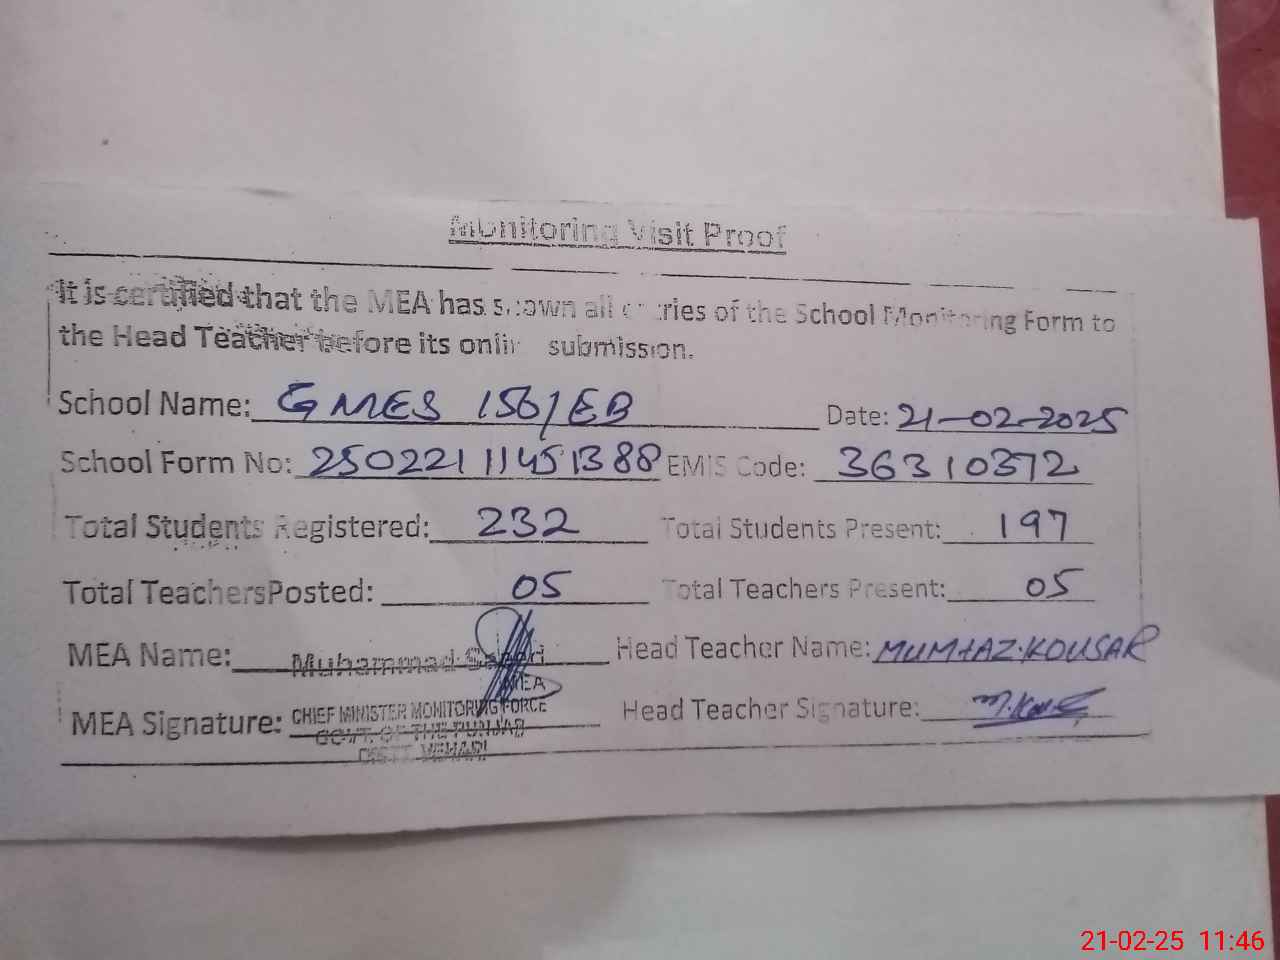 Monitoring Visit Proof
It is certified that the MEA has shown all entries of the School Monitoring Form to
the Head Teacher before its online submission.
School Name: GMES 156/EB Date: 21-02-2025
School Form No: 25022111451388 EMIS Code: 36310372
Total Students Registered: 232 Total Students Present: 197
Total TeachersPosted: 05 Total Teachers Present: 05
MEA Name: Muhammad Head Teacher Name: MUMTAZ.KOUSAR
MEA
MEA Signature: CHIEF MINISTER MONITORING FORCE Head Teacher Signature:
GOVT. OF THE PUNJAB
DISTT. VEHARI
21-02-25 11:46